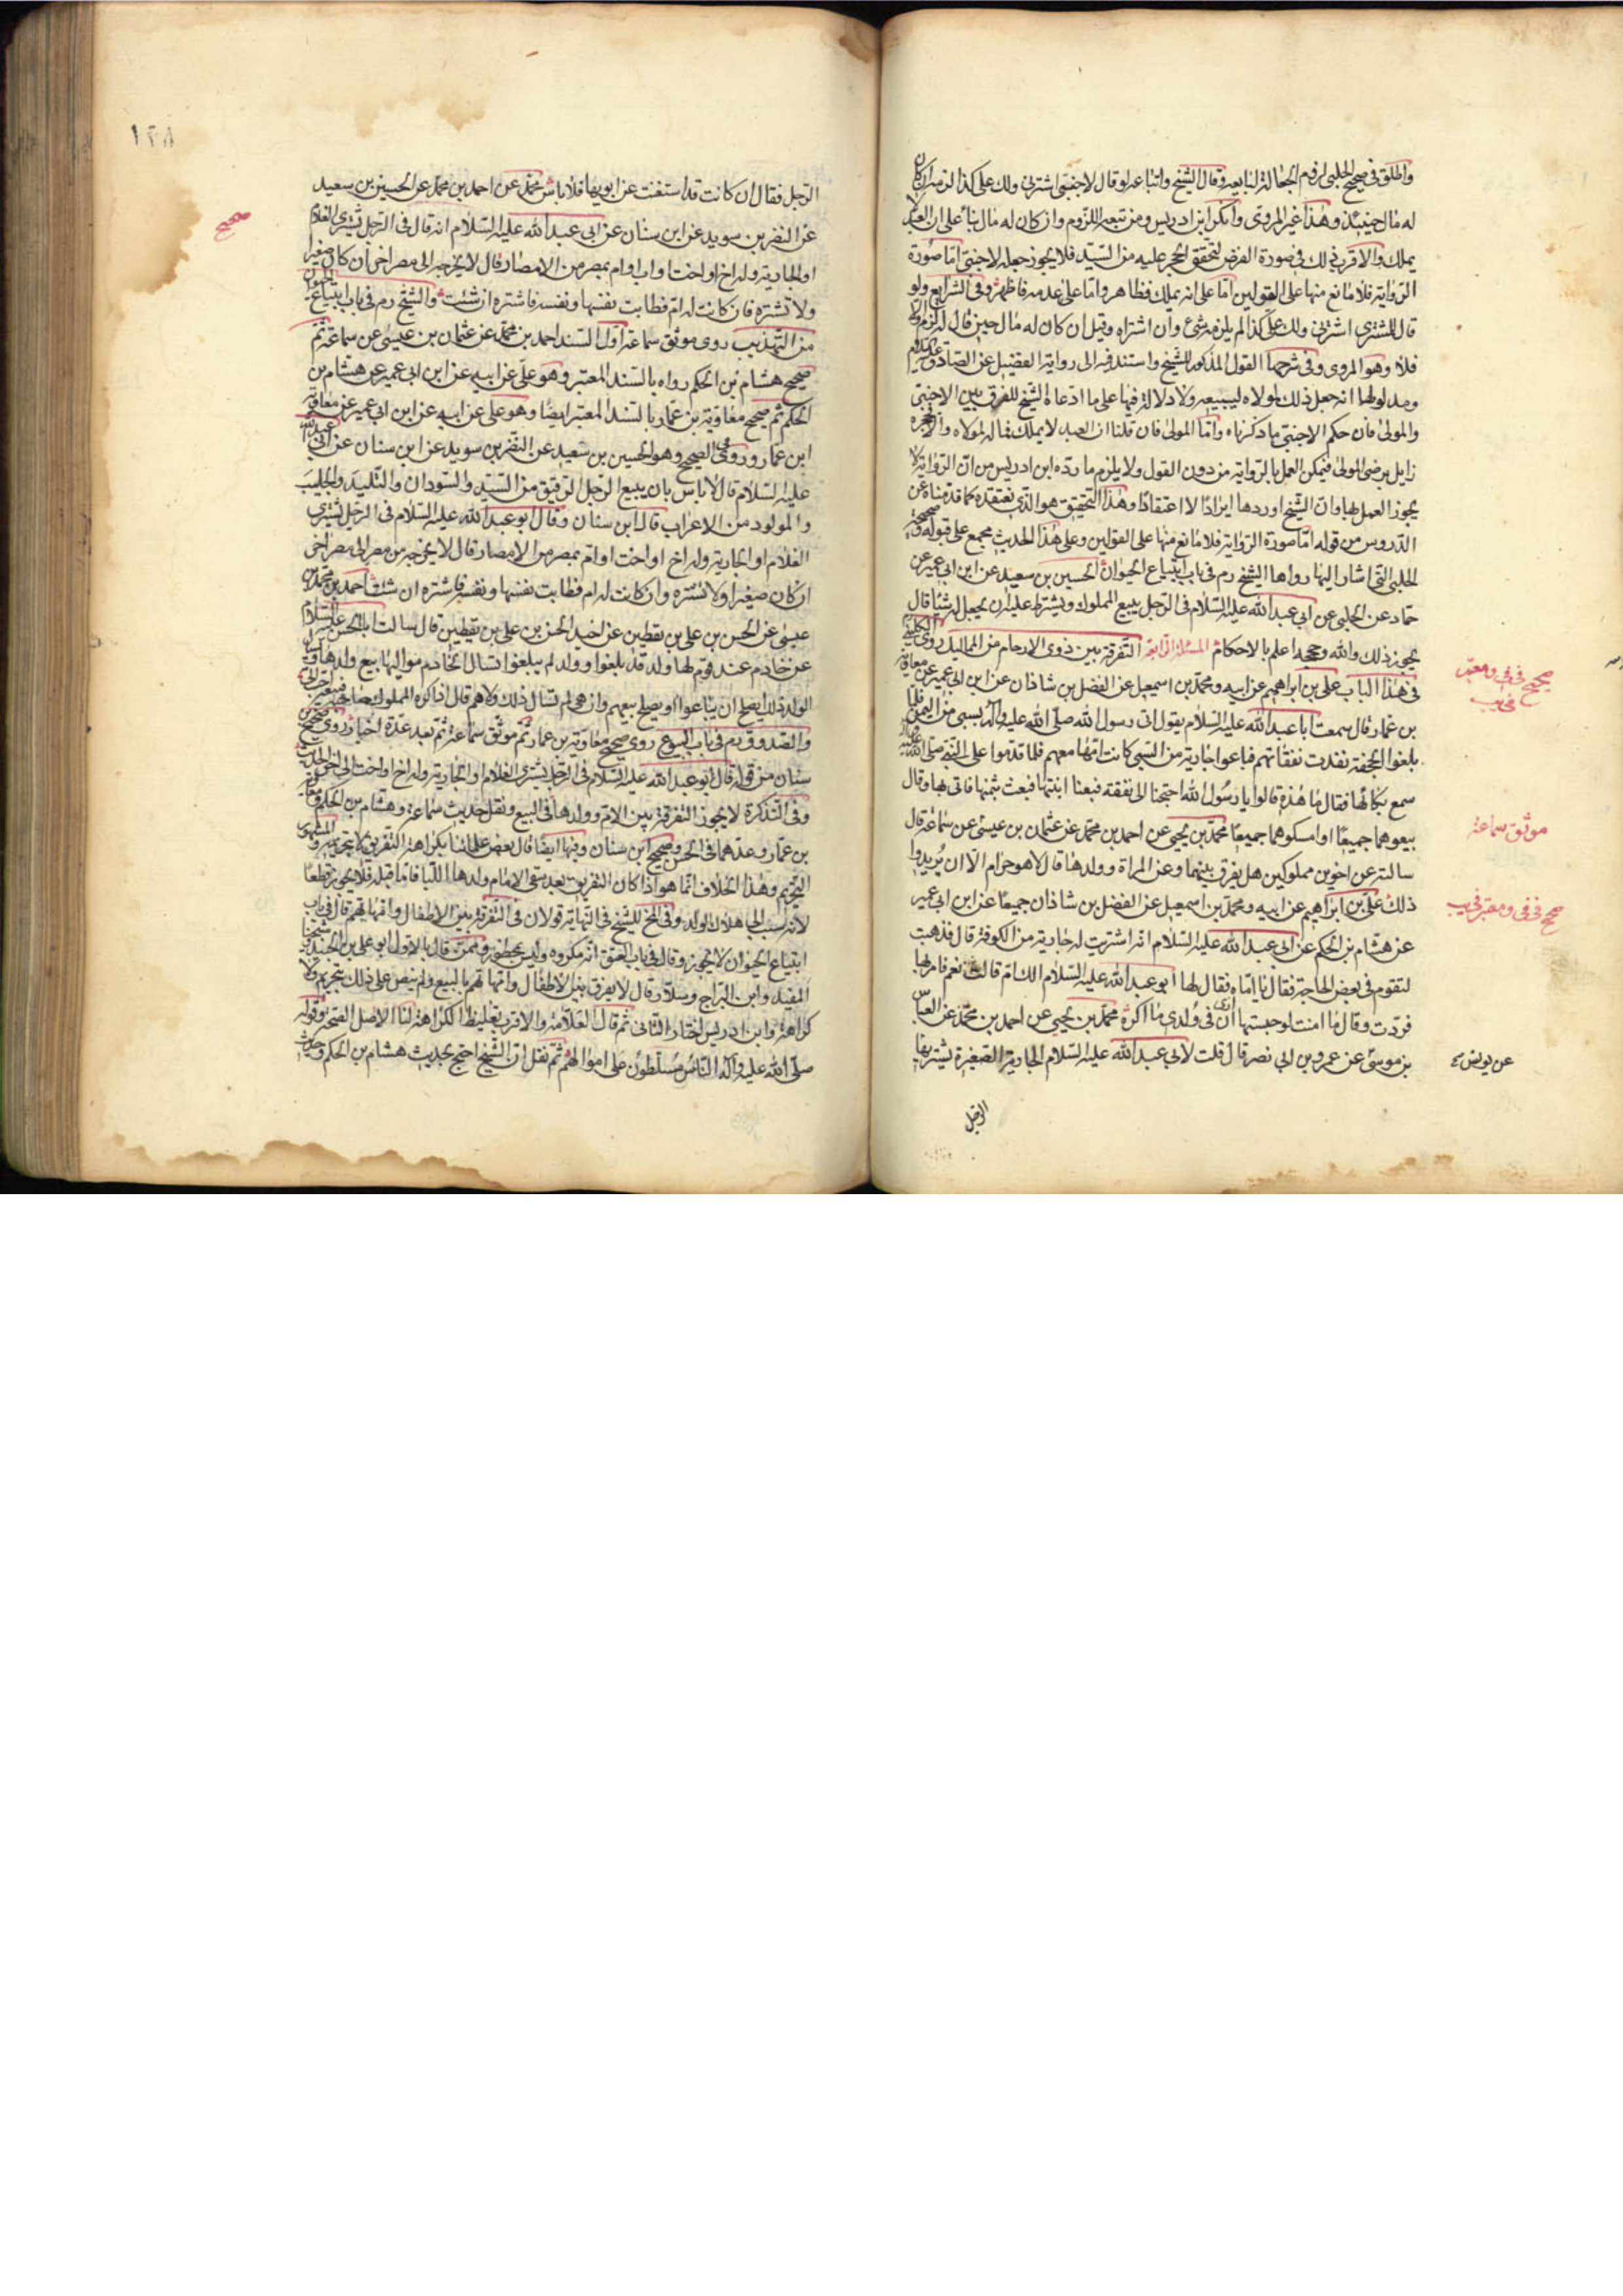 واطلق في صحيح الحلبي لزوم الجعالة لبايعه وقال الشيخ واتباعه لو قال لاجنبي اشترني ولك علي كذا لزمه ان كان
له مال حينئذ وهذا غير المروي وانكر ابن ادريس ومن تبعه اللزوم وان كان له مال بناء على ان العبد لا
يملك والاقرب ذلك في صورة الفرض لتحقق الحجر عليه من السيد فلا يجوز جعله لاجنبي اما صورة
الرواية فلا مانع منها على القولين اما على انه يملك فظاهر واما على عدمه فاظهر وفي الشرايع ولو
قال للمشتري اشترني ولك علي كذا لم يلزمه شيء وان اشتراه وقيل ان كان له مال حين قال لزم والا
فلا وهو المروي وفي شرحها القول المذكور للشيخ واستند فيه الى رواية الفضيل عن الصادق عليه السلام
ومدلولها انه جعل ذلك لمولاه ليبيعه ولا دلالة فيها على ما ادعاه الشيخ للفرق بين الاجنبي
والمولى فان حكم الاجنبي ما ذكرناه واما المولى فان قلنا ان العبد لا يملك فماله لمولاه والا فحجره
زايل برضى المولى فيمكن العمل بالرواية من دون القول ولا يلزم ما رده ابن ادريس من ان الرواية لا
يجوز العمل بها وان الشيخ اوردها ايرادا لا اعتقادا وهذا التحقيق هو الذي نعتقده كما قدمناه عن
الدروس من قوله اما صورة الرواية فلا مانع منها على القولين وعلى هذا الحديث مجمع على قبوله وصحيحة
الحلبي التي اشار اليها رواها الشيخ رم في باب ابتياع الحيوان الحسين بن سعيد عن ابن ابي عمير عن
حماد عن الحلبي عن ابي عبد الله عليه السلام في الرجل يبيع المملوك ويشترط عليه ان يجعل له شيئا قال
يجوز ذلك والله وحججه اعلم بالاحكام المسئلة الرابعة التفرقة بين ذوي الارحام من المماليك روى الكليني
في هذا الباب علي بن ابراهيم عن ابيه ومحمد بن اسمعيل عن الفضل بن شاذان عن ابن ابي عمير عن معاوية
بن عمار قال سمعت ابا عبد الله عليه السلام يقول اتي رسول الله صلى الله عليه وآله بسبي من اليمن فلما
بلغوا الجحفة نفدت نفقاتهم فباعوا جارية من السبي كانت امها معهم فلما قدموا على النبي صلى الله عليه
سمع بكائها فقال ما هذه قالوا يا رسول الله احتجنا الى نفقة فبعنا ابنتها فبعث بثمنها فاتي بها وقال
بيعوهما جميعا او امسكوهما جميعا محمد بن يحيى عن احمد بن محمد عن عثمان بن عيسى عن سماعة قال
سالته عن اخوين مملوكين هل يفرق بينهما وعن المراة وولدها قال لا هو حرام الا ان يريدوا
ذلك علي بن ابراهيم عن ابيه ومحمد بن اسمعيل عن الفضل بن شاذان جميعا عن ابن ابي عمير
عن هشام بن الحكم عن ابي عبد الله عليه السلام انه اشتريت له جارية من الكوفة قال فذهبت
لتقوم في بعض الحاجة فقال يا اماه فقال لها ابو عبد الله عليه السلام الك ام قالت نعم فامر بها
فردت وقال ما امنت لو حبستها ان ارى في ولدي ما اكره محمد بن يحيى عن احمد بن محمد عن العباس
بن موسى عن عمرو بن ابي نصر قال قلت لابي عبد الله عليه السلام الجارية الصغيرة يشتريها
الرجل
صحيح في في ومعتبر
في يب
موثق سماعة
صحيح في في ومعتبر في يب
عن يونس
١٢٨
الرجل فقال ان كانت قد استغنت عن ابويها فلا باس محمد عن احمد بن محمد عن الحسين بن سعيد
عن النضر بن سويد عن ابن سنان عن ابي عبد الله عليه السلام انه قال في الرجل يشتري الغلام
او الجارية وله اخ او اخت او اب او ام بمصر من الامصار قال لا يخرجه الى مصر اخر ان كان صغيرا
ولا تشتره فان كانت له ام فطابت نفسها ونفسه فاشتره ان شئت والشيخ رم في باب ابتياع الحيوان
من التهذيب روى موثق سماعة اول السند احمد بن محمد عن عثمان بن عيسى عن سماعة ثم
صحيح هشام بن الحكم رواه بالسند المعتبر وهو علي عن ابيه عن ابن ابي عمير عن هشام بن
الحكم ثم صحيح معاوية بن عمار بالسند المعتبر ايضا وهو علي عن ابيه عن ابن ابي عمير عن معاوية
ابن عمار وروى في الصحيح وهو الحسين بن سعيد عن النضر بن سويد عن ابن سنان عن ابي عبد الله
عليه السلام قال لا باس بان يبيع الرجل الرقيق من السند والسودان والتليد والجليب
والمولود من الاعراب قال ابن سنان وقال ابو عبد الله عليه السلام في الرجل يشتري
الغلام او الجارية وله اخ او اخت او ام بمصر من الامصار قال لا يخرجه من مصر الى مصر اخر
ان كان صغيرا ولا تشتره وان كانت له ام فطابت نفسها ونفسه فاشتره ان شئت احمد بن محمد بن
عيسى عن الحسن بن علي بن يقطين عن اخيه الحسين بن علي بن يقطين قال سالت ابا الحسن عليه السلام
عن خادم عند قوم لها ولد قد بلغوا وولد لم يبلغوا تسال الخادم مواليها بيع ولدها ويسال
الولد ذلك يصلح ان يباعوا او يصلح بيعهم وان هي لم تسال ذلك ولا هم قال اذا كره المملوك صاحبه فبيعه احب الي
والصدوق رم في باب البيوع روى صحيح معاوية بن عمار ثم موثق سماعة ثم بعد عدة اخبار روى صحيح ابن
سنان من قوله قال ابو عبد الله عليه السلام في الرجل يشتري الغلام او الجارية وله اخ او اخت الى اخر الحديث
وفي التذكرة لا يجوز التفرقة بين الام وولدها في البيع ونقل حديث سماعة وهشام بن الحكم ومعاوية
بن عمار وعدهما في الحسن وصحيح ابن سنان وفيها ايضا قال بعض علمائنا بكراهة التفريق لا بتحريمه والمشهور
التحريم وهذا الخلاف انما هو اذا كان التفريق بعد سقي الام ولدها اللبا فاما قبله فلا يجوز قطعا
لانه سبب الى هلاك الولد وفي المخ للشيخ في النهاية قولان في التفرقة بين الاطفال وامهاتهم قال في باب
ابتياع الحيوان لا يجوز وقال في باب العتق انه مكروه وليس بمحظور وممن قال بالاول ابو علي بن الجنيد وشيخنا
المفيد وابن البراج وسلار قال لا يفرق بين الاطفال وامهاتهم بالبيع ولم ينص على ذلك بتحريم ولا
كراهة وابن ادريس اختار الثاني ثم قال العلامة والاقرب تغليظ الكراهة لنا الاصل الصحة وقوله
صلى الله عليه وآله الناس مسلطون على اموالهم ثم نقل ان الشيخ احتج بحديث هشام بن الحكم وحديث
صحيح